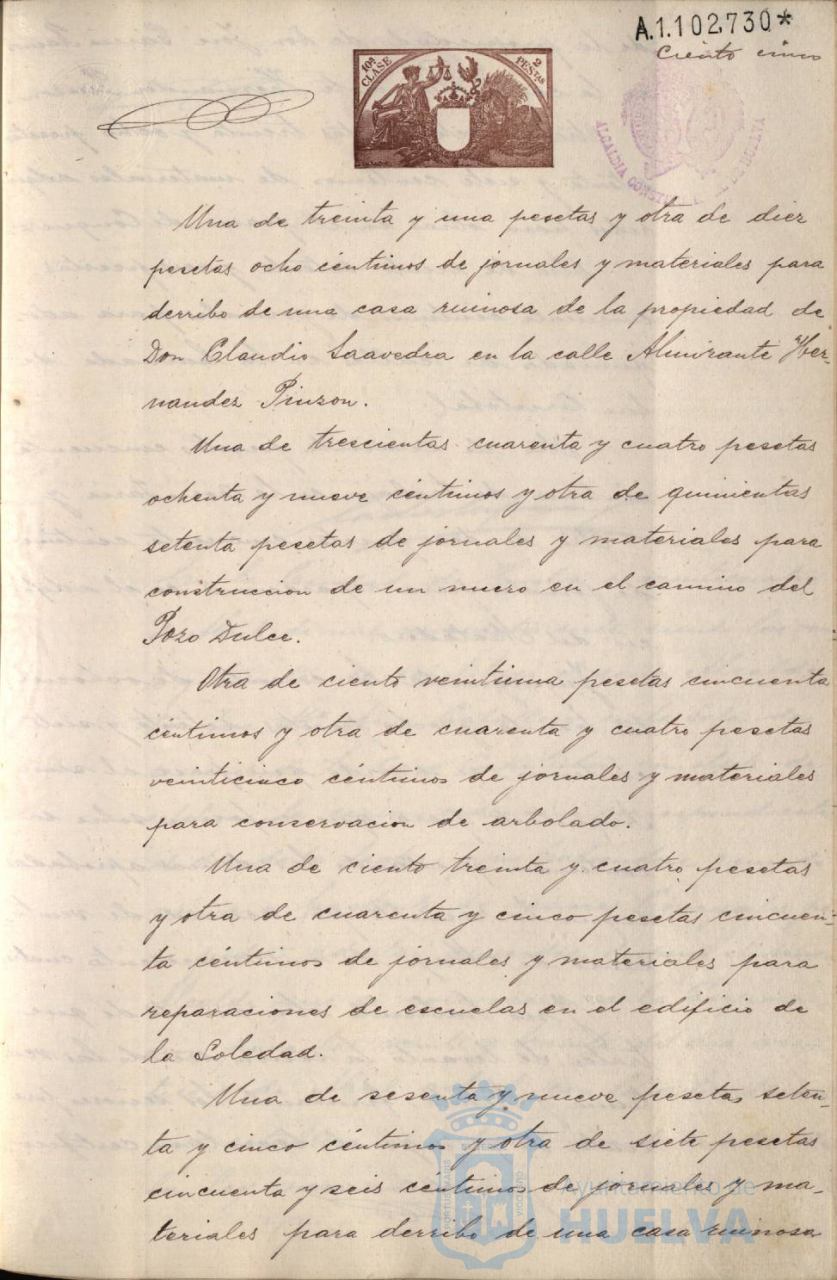 A.1.102,730*
Ciento cinco
10ª CLASE
2 PESETAS
ALCALDIA CONSTITUCIONAL DE HUELVA
Una de treinta y una pesetas y otra de diez
pesetas ocho céntimos de jornales y materiales para
derribo de una casa ruinosa de la propiedad de
Don Claudio Saavedra en la calle Almirante Her-
nandez Pinzon.
Una de trescientas cuarenta y cuatro pesetas
ochenta y nueve céntimos y otra de quinientas
setenta pesetas de jornales y materiales para
construccion de un muro en el camino del
Pozo Dulce.
Otra de ciento veintiuna pesetas cincuenta
céntimos y otra de cuarenta y cuatro pesetas
veinticinco céntimos de jornales y materiales
para conservacion de arbolado.
Una de ciento treinta y cuatro pesetas
y otra de cuarenta y cinco pesetas cincuen-
ta céntimos de jornales y materiales para
reparaciones de escuelas en el edificio de
la Soledad.
Una de sesenta y nueve pesetas seten-
ta y cinco céntimos y otra de siete pesetas
cincuenta y seis céntimos de jornales y ma-
teriales para derribo de una casa ruinosa
Ayuntamiento de
HUELVA